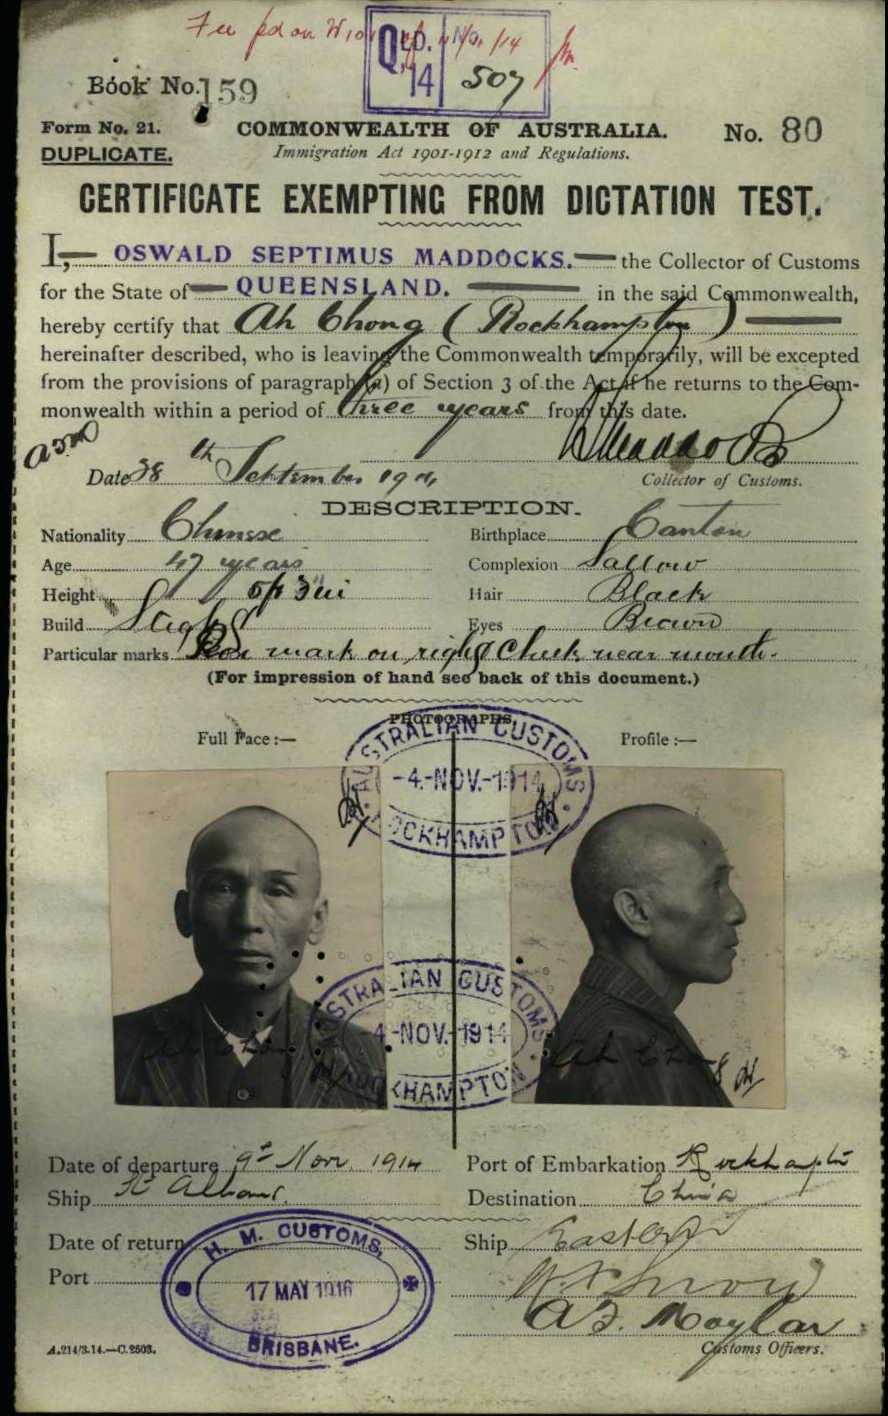 Fee pd on
QLD. No.
14 507
Book No. 159
Form No. 21. COMMONWEALTH OF AUSTRALIA. No. 80
DUPLICATE. Immigration Act 1901-1912 and Regulations.
CERTIFICATE EXEMPTING FROM DICTATION TEST.
I, OSWALD SEPTIMUS MADDOCKS. the Collector of Customs
for the State of QUEENSLAND. in the said Commonwealth,
hereby certify that Ah Chong (Rockhampton)
hereinafter described, who is leaving the Commonwealth temporarily, will be excepted
from the provisions of paragraph (a) of Section 3 of the Act if he returns to the Com-
monwealth within a period of three years from this date.
Date 28th September 1914 Collector of Customs.
DESCRIPTION.
Nationality Chinese Birthplace Canton
Age 47 years Complexion Sallow
Height 5ft 3in Hair Black
Build Eyes Brown
Particular marks mark on right cheek near mouth.
(For impression of hand see back of this document.)
PHOTOGRAPHS.
Full Face :— Profile :—
AUSTRALIAN CUSTOMS
-4.-NOV.-1914
ROCKHAMPTON
AUSTRALIAN CUSTOMS
4-NOV.-1914
ROCKHAMPTON
Ah Chong Ah Chong
Date of departure 9th Nov. 1914 Port of Embarkation Rockhampton
Ship St Albans. Destination China
Date of return Ship Eastern
Port
H. M. CUSTOMS,
17 MAY 1916
BRISBANE.
A.214/3.14.—C.2503. Customs Officers.